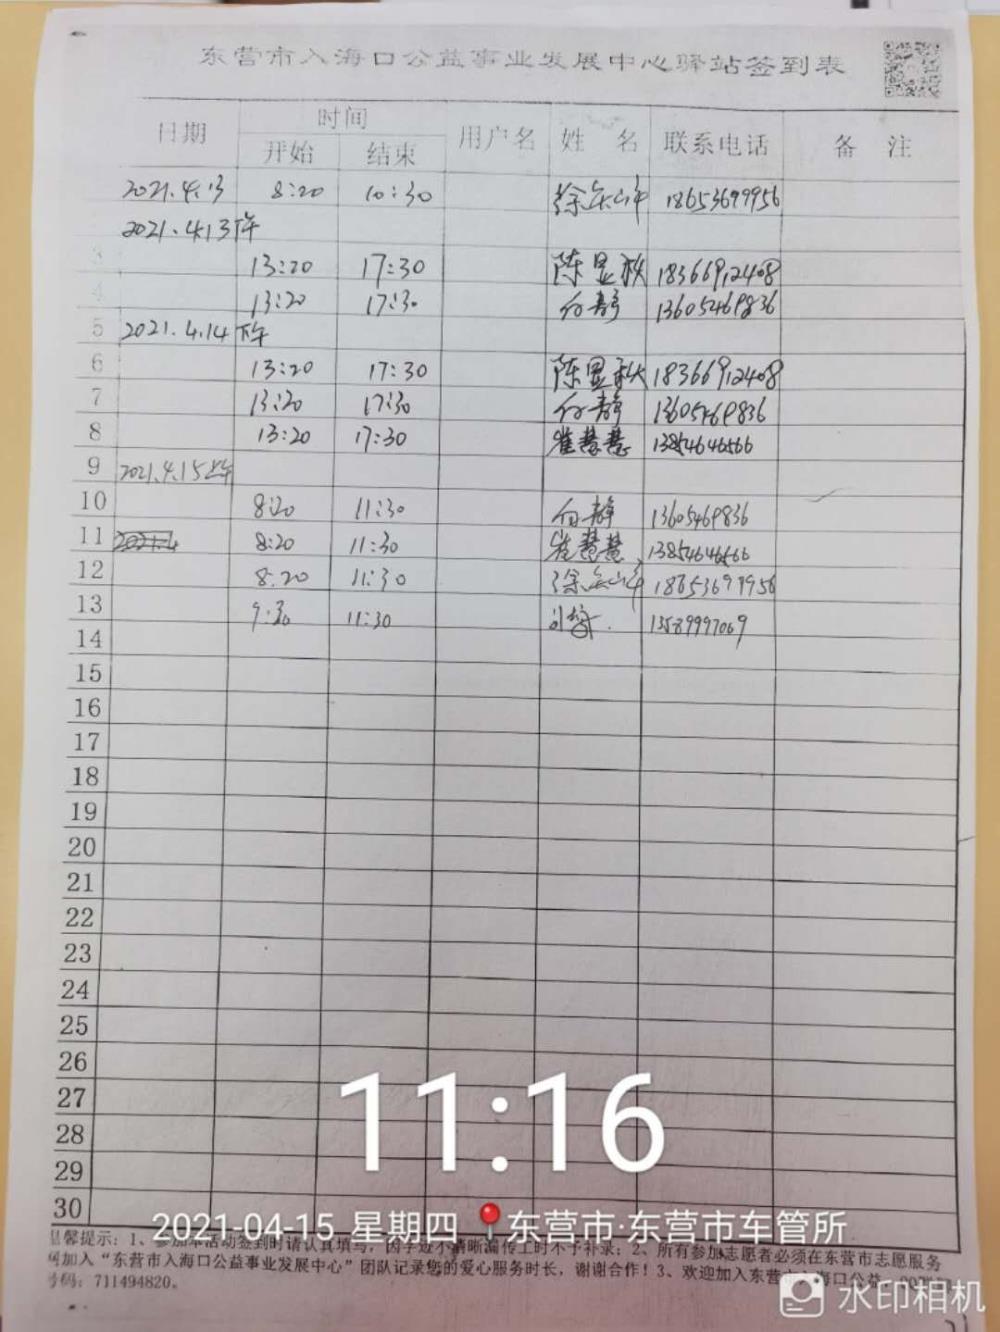 东营市入海口公益事业发展中心驿站签到表
日期 时间 用户名 姓 名 联系电话 备 注
开始 结束
2021.4.13 8:20 10:30 18653699956
2021.4.13下午
3 13:20 17:30 陈显秋 18366912408
4 13:20 17:30 付静 13605469836
5 2021.4.14下午
6 13:20 17:30 陈显秋 18366912408
7 13:20 17:30 付静 13605469836
8 13:20 17:30 崔慧慧 13854646566
9 2021.4.15上午
10 8:20 11:30 付静 13605469836
11 2021.4 8:20 11:30 崔慧慧 13854646566
12 8:20 11:30 18653699956
13 9:30 11:30 13589997069
14
15
16
17
18
19
20
21
22
23
24
25
26
27
28
29
30
11:16
2021-04-15 星期四 东营市·东营市车管所
温馨提示：1、参加本活动签到时请认真填写，因字迹不清晰漏传工时不予补录；2、所有参加志愿者必须在东营市志愿服务
网加入“东营市入海口公益事业发展中心”团队记录您的爱心服务时长，谢谢合作！3、欢迎加入东营 海口公益
号码：711494820。
水印相机